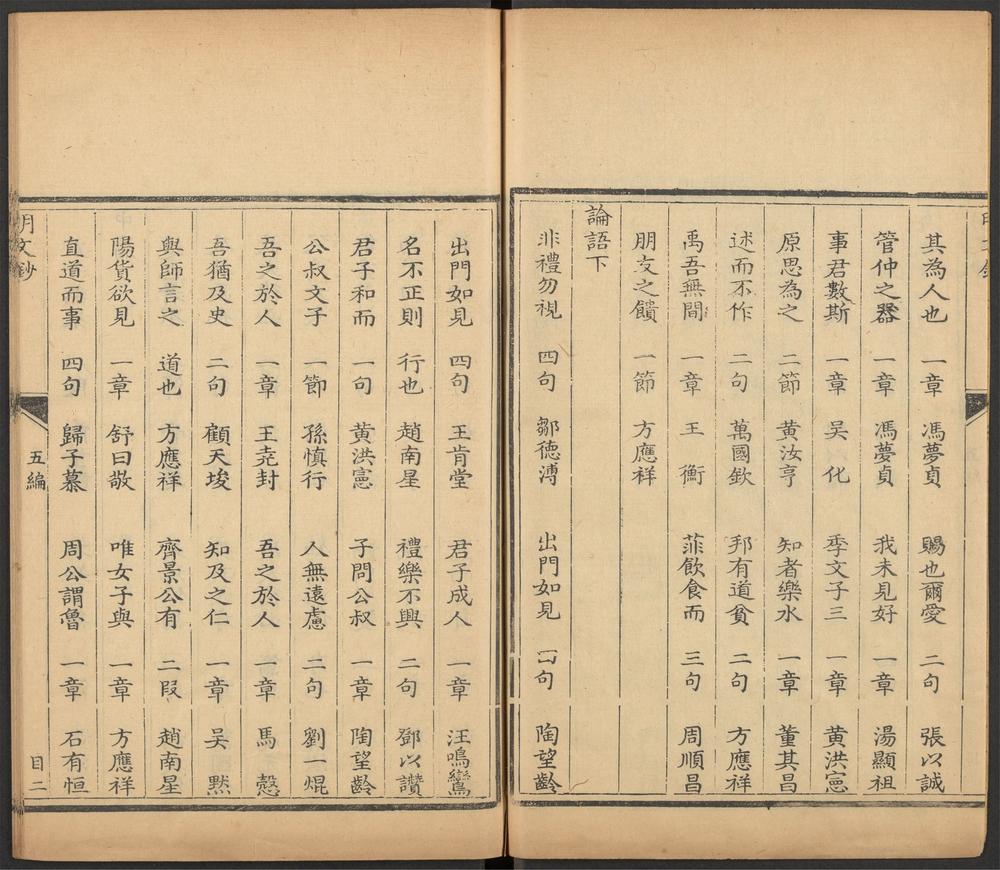 其為人也 一章 馮夢貞 賜也爾愛 二句 張以誠
管仲之器 一章 馮夢貞 我未見好 一章 湯顯祖
事君數斯 一章 吳化 季文子三 一章 黃洪憲
原思為之 二節 黃汝亨 知者樂水 一章 董其昌
述而不作 二句 萬國欽 邦有道貧 二句 方應祥
禹吾無間 一章 王衡 菲飲食而 三句 周順昌
朋友之饋 一節 方應祥
論語下
非禮勿視 四句 鄒德溥 出門如見 句 陶望齡
出門如見 四句 王肯堂 君子成人 一章 汪鳴鸞
名不正則 行也 趙南星 禮樂不興 二句 鄧以讚
君子和而 一句 黃洪憲 子問公叔 一章 陶望齡
公叔文子 一節 孫慎行 人無遠慮 二句 劉一焜
吾之於人 一章 王堯封 吾之於人 一章 馬慤
吾猶及史 二句 顧天埈 知及之仁 一章 吳默
與師言之 道也 方應祥 齊景公有 二段 趙南星
陽貨欲見 一章 舒曰敬 唯女子與 一章 方應祥
直道而事 四句 歸子慕 周公謂魯 一章 石有恒
明文鈔 五編 目二